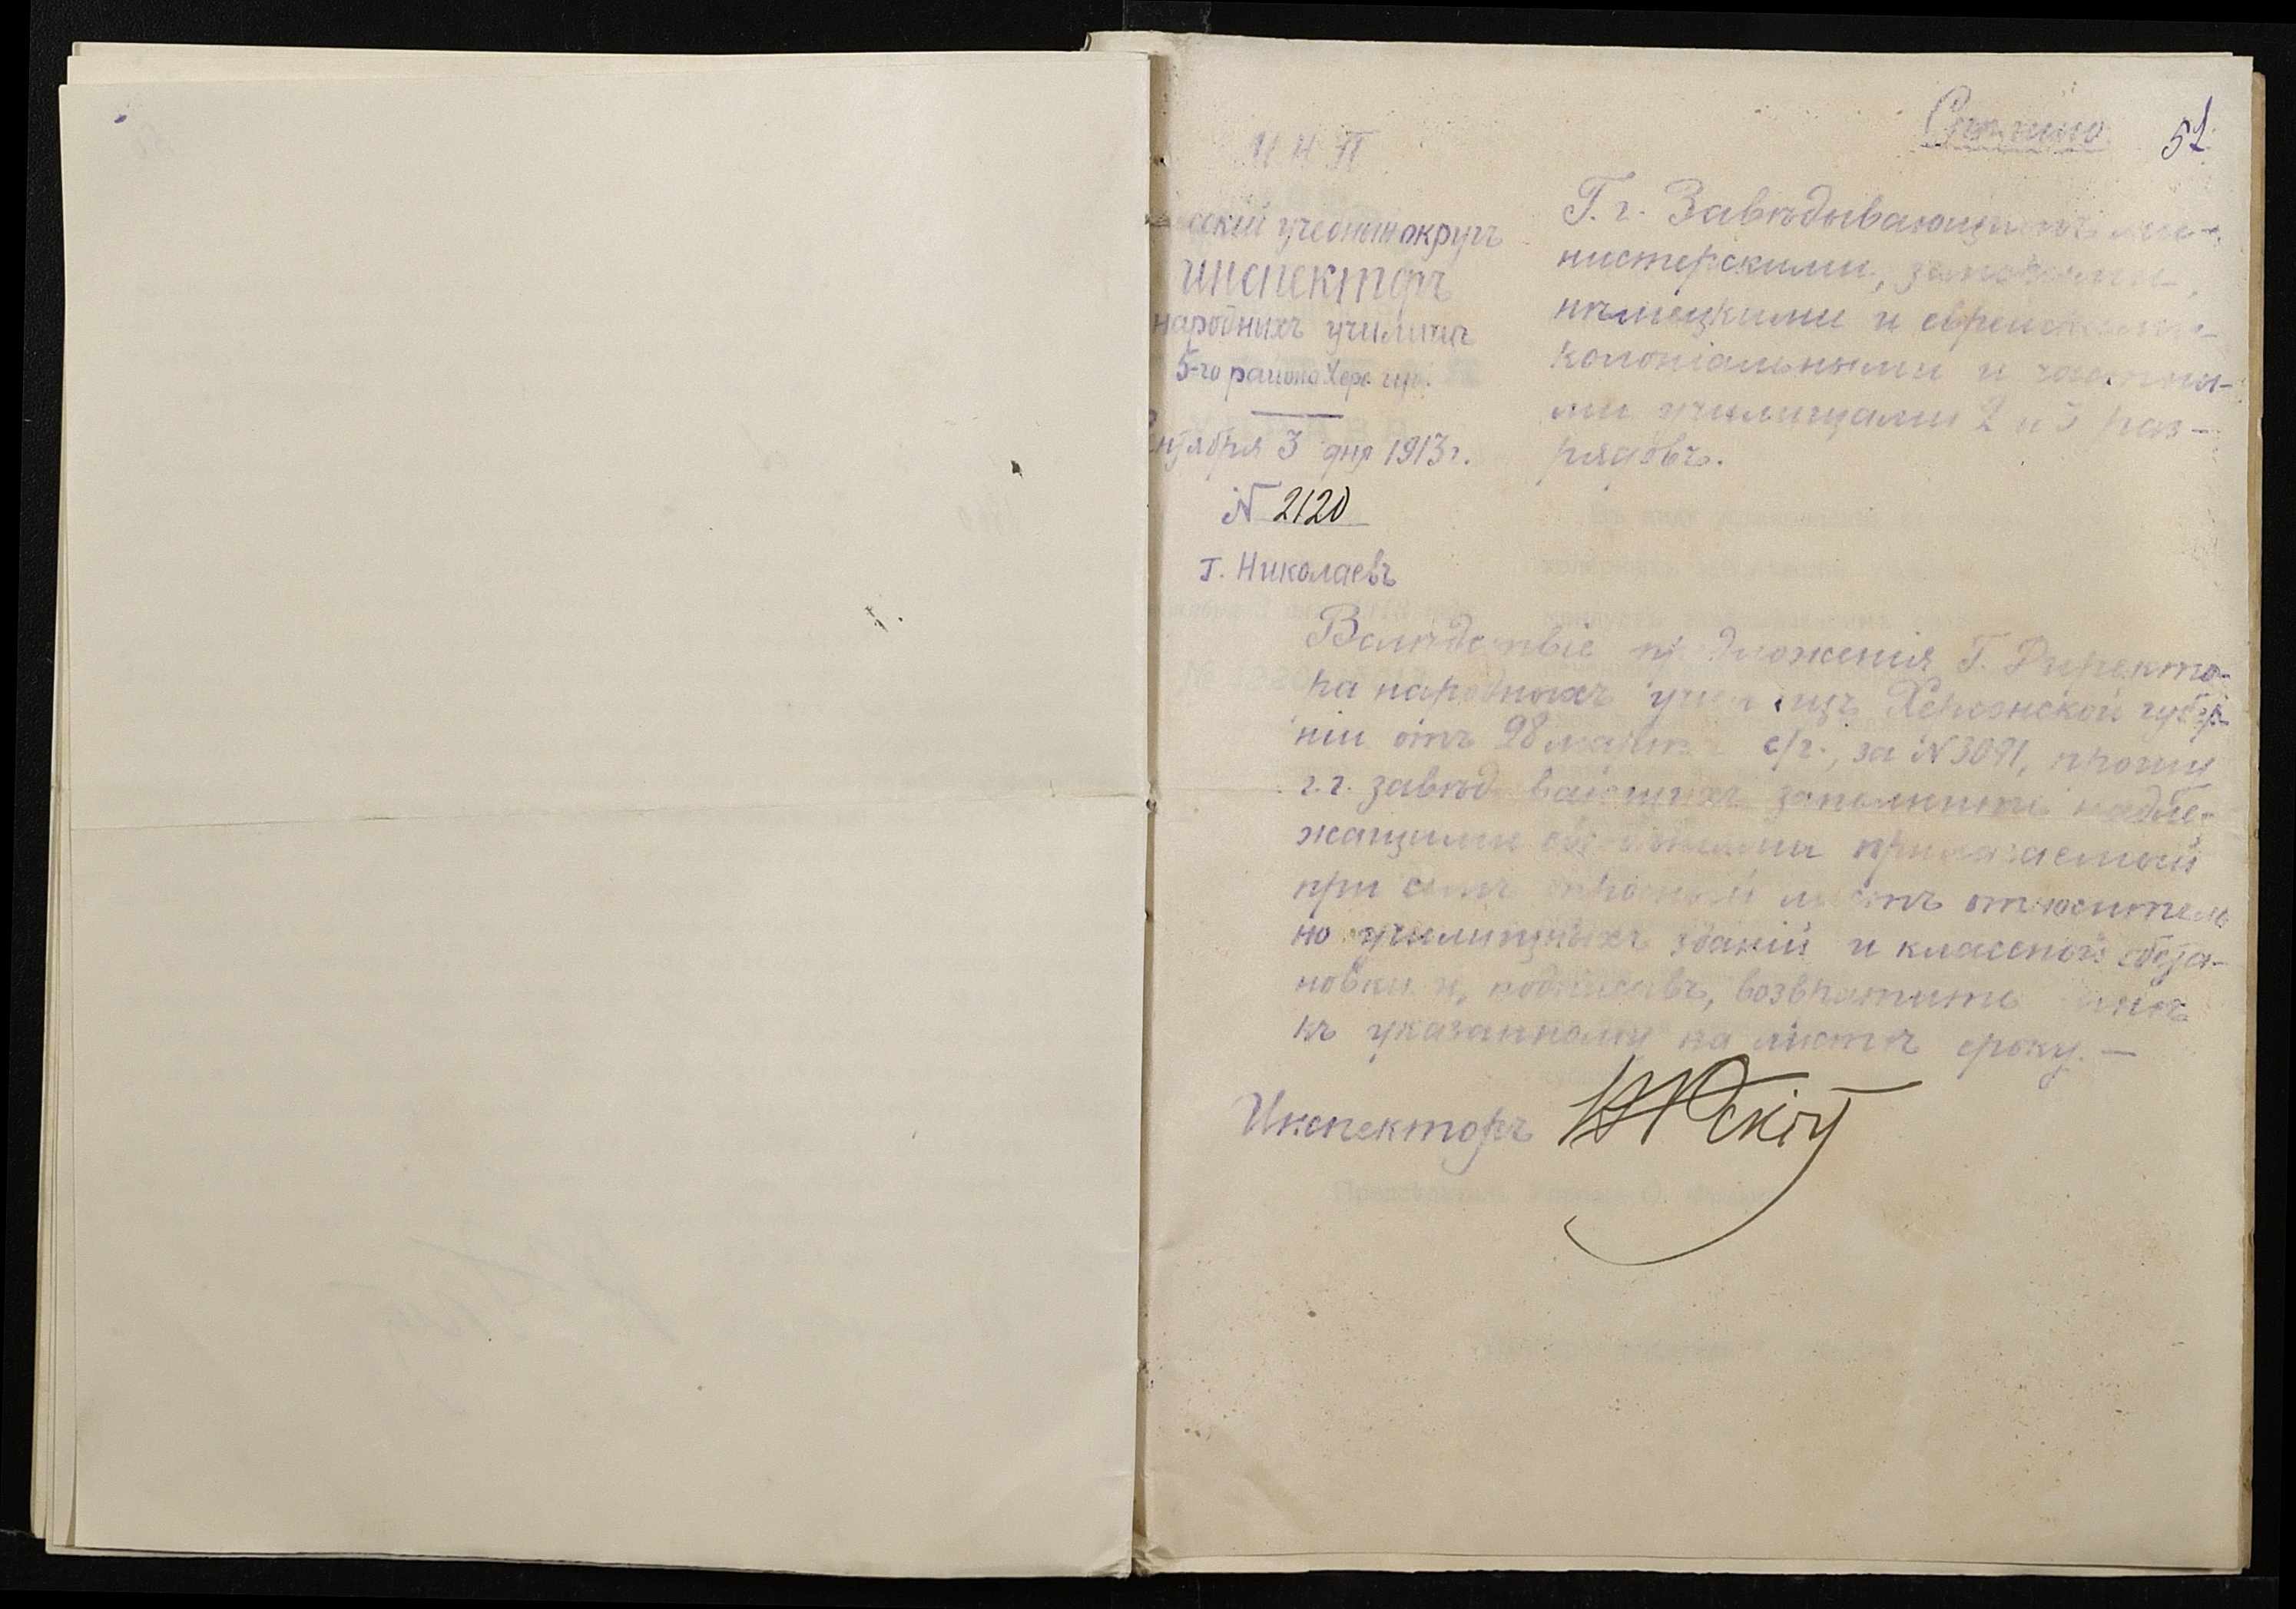 Срочно
51
М Н П
сскій учебный округъ
инспекторъ
народныхъ училищъ
5-го района Херс. губ.
нтября 3 дня 1913 г.
N 2120
г. Николаевъ
Г. г. Завѣдывающимъ ми-
нистерскими, земскими,
нѣмецкими и еврейскими
колоніальными и частны-
ми училищами 2 и 3 раз-
рядовъ.
Вслѣдствіе предложенія Г. Директо-
ра народныхъ училищъ Херсонской губер-
ніи отъ 28 марта с/г., за N 3091, прошу
г.г. завѣдывающихъ заполнить надле-
жащими свѣдѣніями прилагаемый
при семъ опросный листъ относитель
но училищныхъ зданій и классной обста-
новки и, подписавъ, возвратить мнѣ
къ указанному на листѣ сроку. —
Инспекторъ